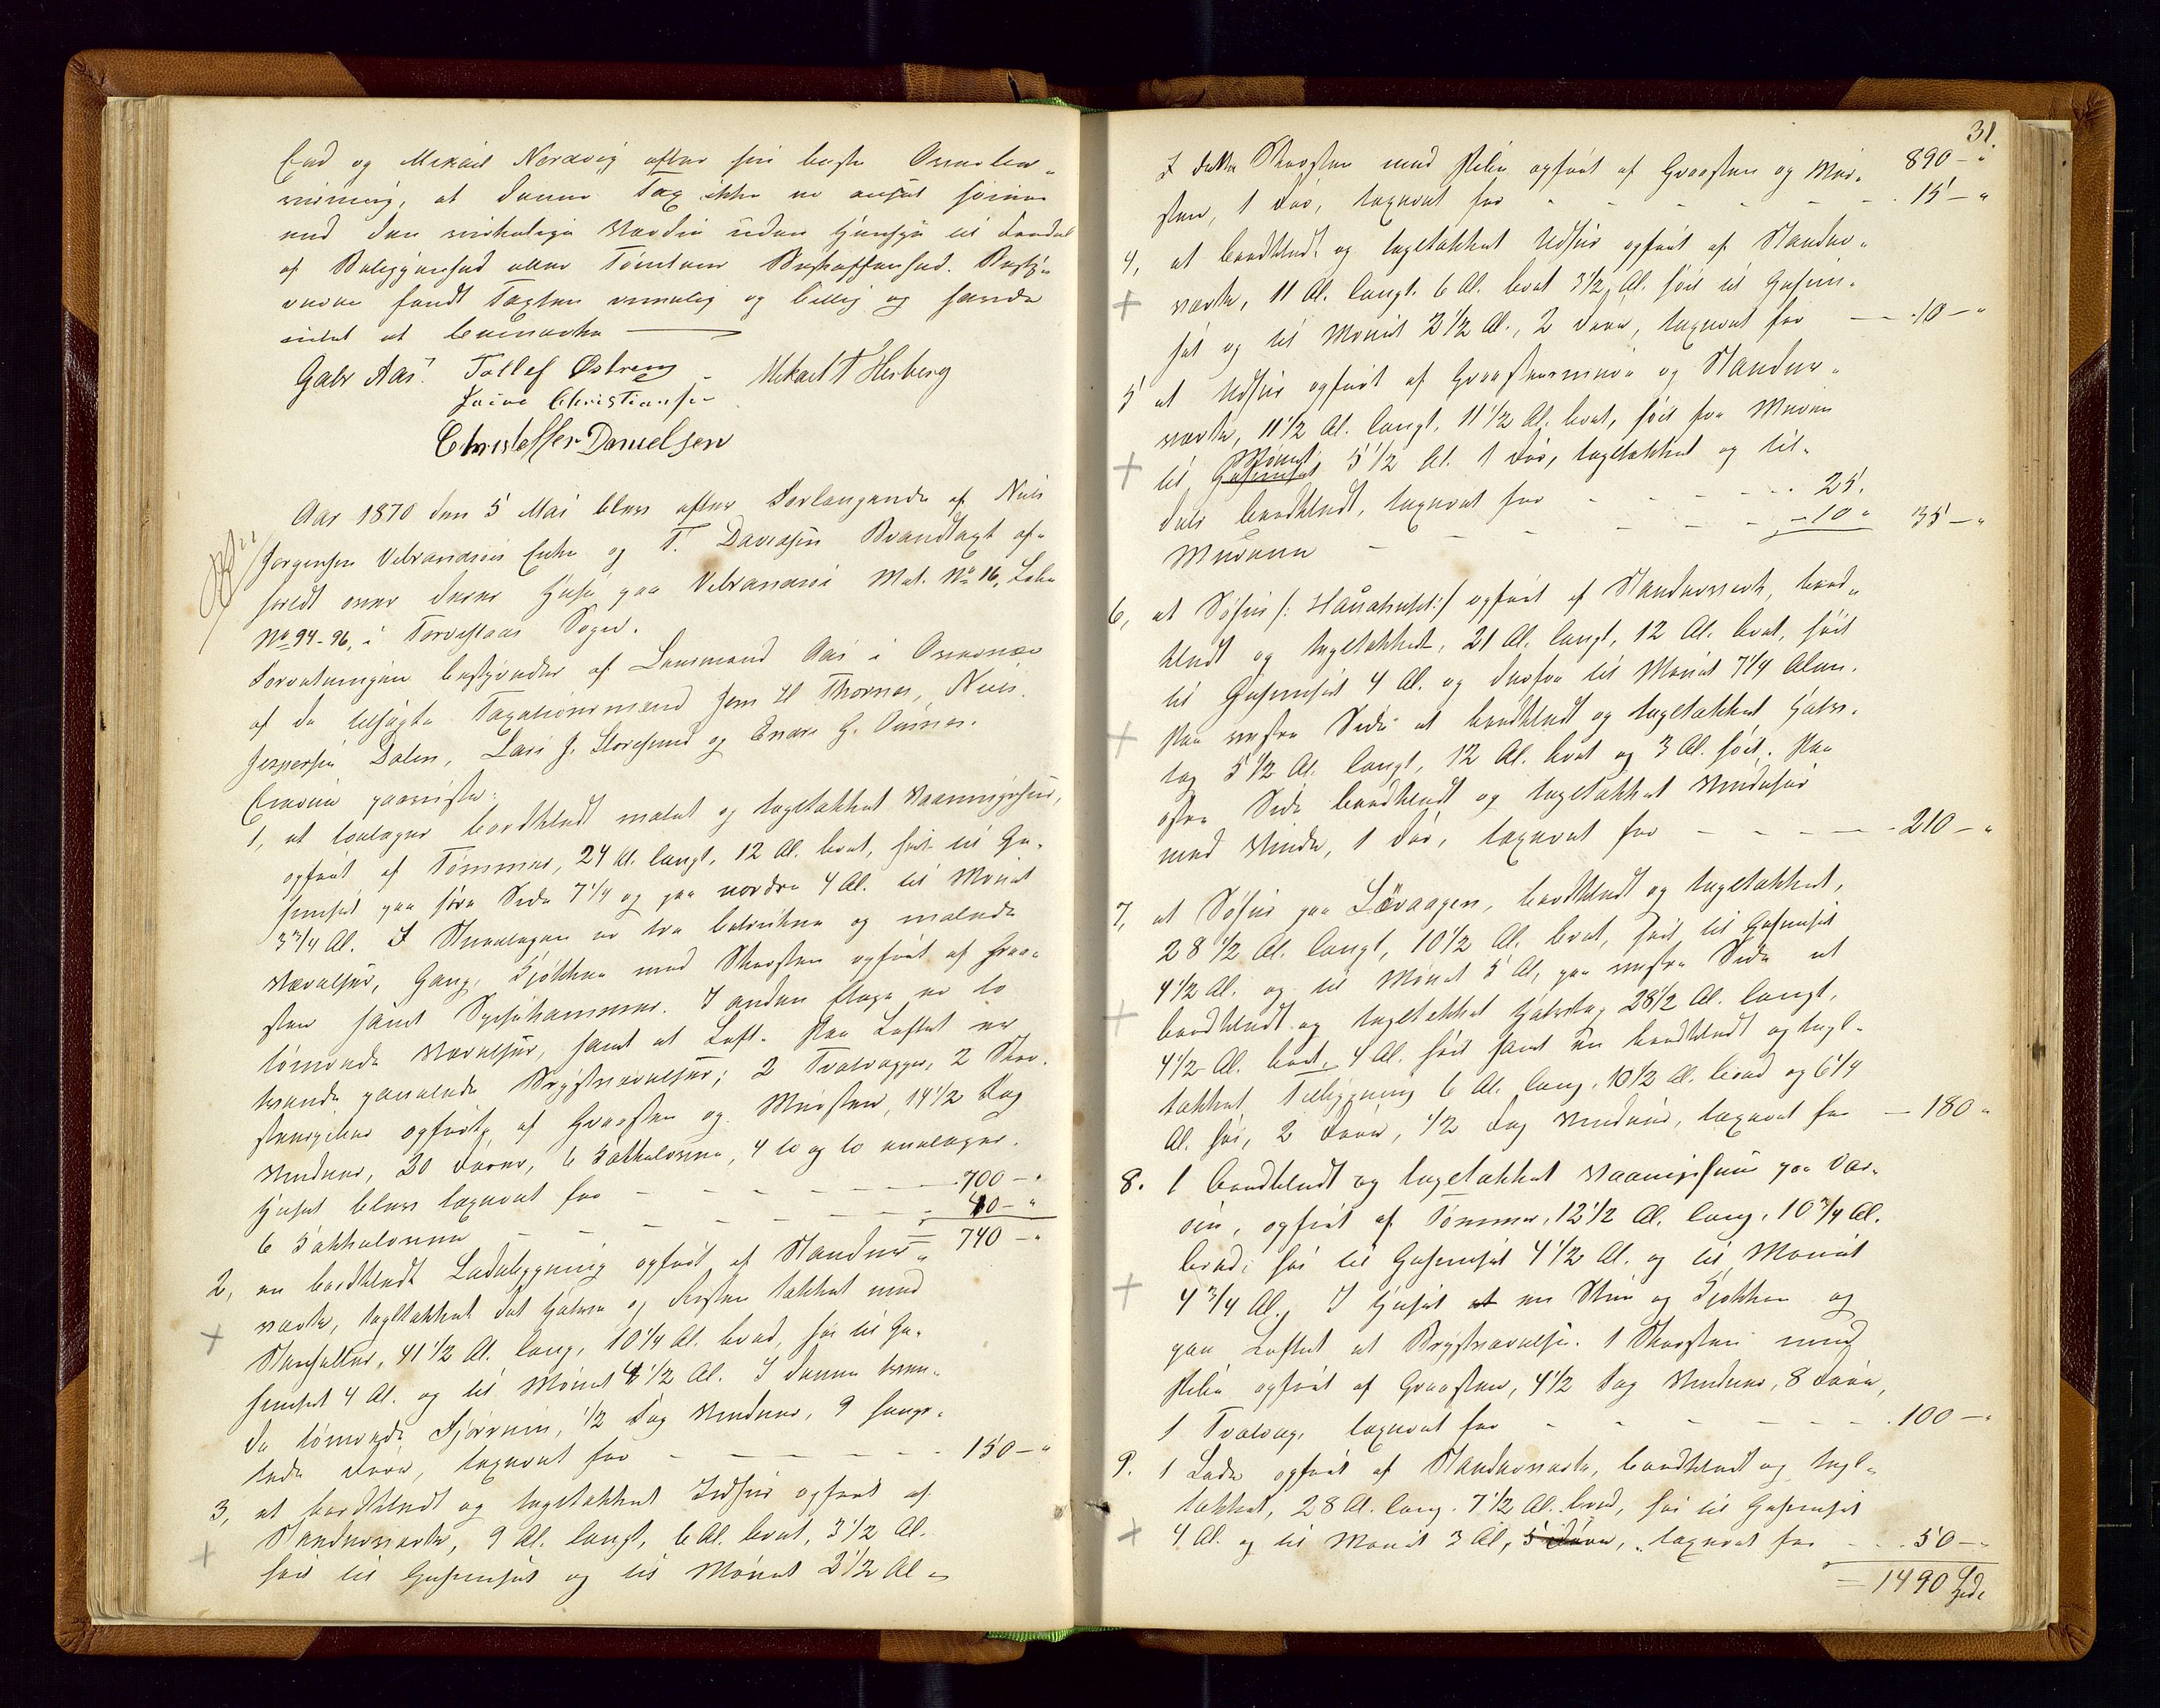 Eed og Mikael Nerdvig efter sin bedste Overbe-
visning, at denne Tax ikke er ansat høiere
end den virkelige Værdie uden Hensyn til Fordel
af Beliggenhed eller Tomtens Beskaffenhed. Besty-
reren fandt Taxten rimelig og billig og havde
intet at bemærke
Gabr Aas. Tollef Østreng Mikael T Hesberg
Christiansen
Christoffer Danielsen
Aar 1870 den 5 Mai blev efter Forlangende af Niels
Jørgensen Vibrandsøes Enke og T. Davidsen Brandtaxt af-
holdt over deres Huse paa Vibrandsøe Mat. No 16, Løbe
No 94-96, i Torvestads Sogn.
Forretningen bestyredes af Lensmand Aas i Overvær
af de tilsagte Taxationsmænd Jens H Thornes, Niels
Jespersen Dalen, Lars J. Storesund og Endre G. Osnes.
Eierne paaviste:
1, et toetages bordklædt malet og tegltækket Vaaningshuus,
opført af Tømmer, 24 Al. langt, 12 Al. bredt, høit til Ge-
simset paa søre Side 7 1/4 og paa nordre 4 Al. til Mønet
3 3/4 Al. I Stueetagen er tre betrukne og malede
Værelser, Gang, Kjøkken med Skorsten opført af Graa-
sten samt Spisekammer. I anden Etage er to
tømrede Værelser, samt et Loft. Paa Loftet er
tvende panelede Brystværelser; 2 Tralvapper, 2 Skor-
stenspiber opførte af Graasten og Mursten, 14 1/2 Fag
Vinduer, 20 Dørre, 6 Kakkelovne, 4 to og to eenetages.
Huset blev taxeret for - - - - 700 - "
6 Kakkelovne - - - - 40 - "
= 740 - "
2, en bordklædt Ladebygning opført af Stander-
værk, tegltækket det halve og Resten tækket med
Steenheller, 41 1/2 Al. lang, 10 1/4 Al. bred, høi til Ge-
simset 4 Al. og til Mønet 4 1/2 Al. I denne tven-
de tømrede Fjørrum, 1/2 Fag Vinduer, 9 hengs-
lede Døre, taxeret for - - - - 150 - "
3, et bordklædt og tegltækket Ildhus opført af
Standerværk, 9 Al. langt, 6 Al. bredt, 3 1/2 Al.
høit til Gesimset og til Mønet 2 1/2 Al -
31.
I dette Skorsten med Pibe opført af Graasten og Mur- 890 - "
sten, 1 Dør, taxeret for - - - - 15 - "
4, et bordklædt og tegltækket Udhus opført af Stander-
værk, 11 Al. langt. 6 Al. bredt 3 1/2 Al. høit til Gesim-
set og til Mønet 2 1/2 Al., 2 Døre, taxeret for - - 10 - "
5 et Udhus opført af Graasteensmure og Stander-
værk, 11 1/2 Al. langt, 11 1/2 Al. bredt, høit fra Muren
Mønet
til Gesimset 5 1/2 Al. 1 Dør, tegltækket og til-
dels bordklædt, taxeret for - - - - 25.
Murene - - - - 10 " 35 - "
6, et Søhus /: Hauaskuldt :/ opført af Standerværk, bord-
klædt og tegltækket, 21 Al. langt, 12 Al. bredt, høit
til Gesimset 4 Al. og derfra til Mønet 7 1/4 Alen.
Paa vestre Side et bordklædt og tegltækket Halv-
tag 5 1/2 Al. langt, 12 Al. bredt og 3 Al. høit. Paa
østre Side bordklædt og tegltækket Vindehus
med Vinde, 1 Dør, taxeret for - - - - 210 - "
7, et Søhus paa Lövaagen, bordklædt og tegltækket,
28 1/2 Al. langt, 10 1/2 Al. bredt, høit til Gesimset
4 1/2 Al. og til Mønet 5 Al, paa vestre Side et
bordklædt og tegltækket Halvtag 28 1/2 Al. langt,
4 1/2 Al. bredt, 4 Al. høit samt en bordklædt og tegl-
tækket Tilbygning 6 Al. lang, 10 1/2 Al. bred og 6 1/4
Al. høi, 2 Døre, 1/2 Fag Vinduer, taxeret for - 180 "
8. 1 bordklædt og tegltækket Vaaningshuus paa Var-
øen, opført af Tømmer, 12 1/2 Al. lang, 10 3/4 Al.
bred, høi til Gesimset 4 1/2 Al. og til Mønet
4 3/4 Al. I Huset et er Stue og Kjøkken og
paa Loftet et Brystværelse. 1 Skorsten med
Pibe opført af Graasten, 4 1/2 Fag Vinduer, 8 Døre,
1 Tralvap, taxeret for - - - - 100 - "
9. 1 Lade opført af Standerværk, bordklædt og tegl-
tækket, 28 Al. lang, 7 1/2 Al. bred, høi til Gesimset
4 Al. og til Mønet 3 Al, 5 Døre, taxeret for - - 50 - "
= 1490 Spd